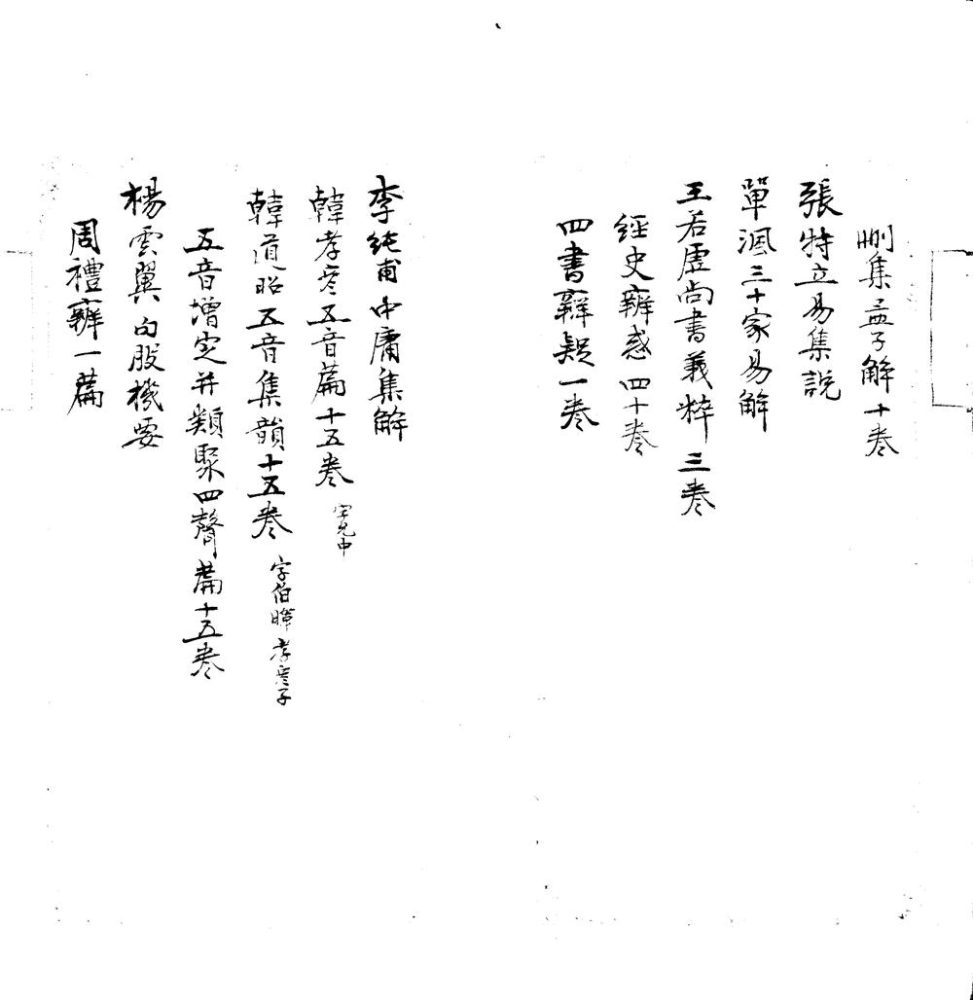 刪集孟子解十卷
張特立易集說
單渢三十家易解
王若虛尚書義粹三卷
經史辨惑四十卷
四書辨疑一卷
李純甫中庸集解
韓孝彥五音篇十五卷 字允中
韓道昭五音集韻十五卷 字伯暉孝彥子
五音增定并類聚四聲篇十五卷
楊雲翼句股機要
周禮辨一篇